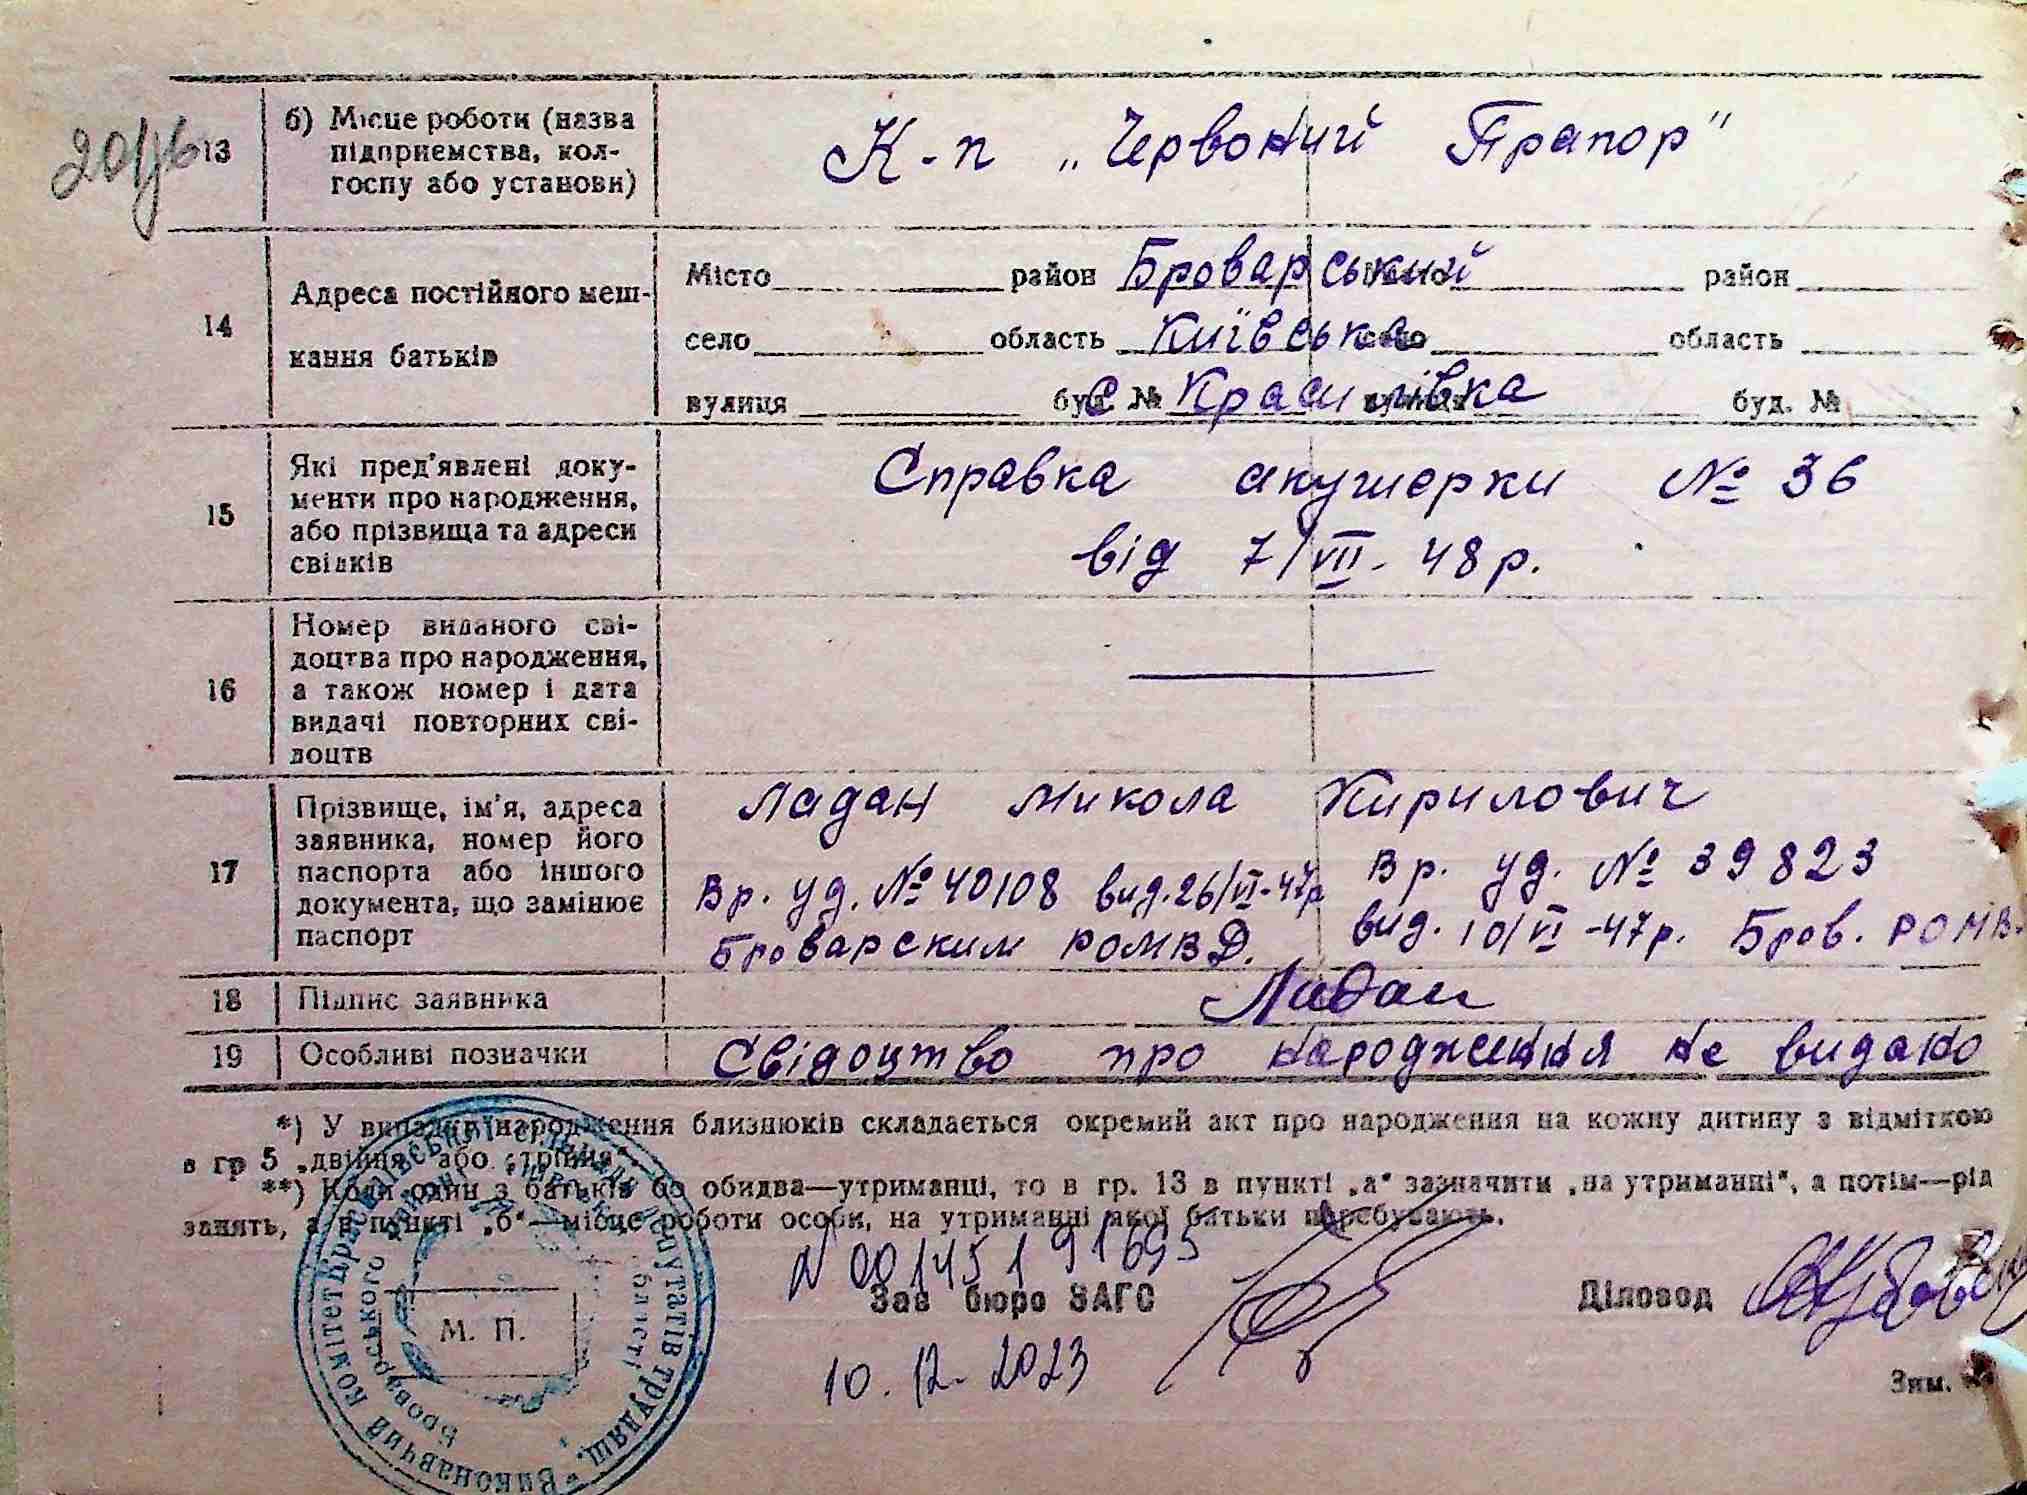 201/б
13
б) Місце роботи (назва підприємства, кол-
госпу або установи)
К-п „Червоний Прапор"
14
Адреса постійного меш-
кання батьків
Місто район Броварський район
село область Київська село область
вулиця буд. № с Красилівка буд. №
15
Які пред'явлені доку-
менти про народження,
або прізвища та адреси
свідків
Справка акушерки № 36
від 7/VII-48р.
16
Номер виданого сві-
доцтва про народження,
а також номер і дата
видачі повторних сві-
доцтв
17
Прізвище, ім'я, адреса
заявника, номер його
паспорта або іншого
документа, що замінює
паспорт
Ладан Микола Кирилович
Вр. уд. № 40108 вид. 26/VI-47р
Броварским РОМВД.
Вр. уд. № 39823
вид. 10/VI-47р. Бров. РОМВ.
18
Підпис заявника
Ладан
19
Особливі позначки
Свідоцтво про народження не видано
*) У випадку народження близнюків складається окремий акт про народження на кожну дитину з відміткою
в гр 5 „двійня" або „трійня".
**) Коли один з батьків бо обидва—утриманці, то в гр. 13 в пункті „а" зазначити „на утриманні", а потім—рід
занять, а в пункті „б"—місце роботи особи, на утриманні якої батьки перебувають.
N 00145191695
Зав бюро ЗАГС
Діловод
10.12.2023
М. П.
Виконавчий комітет депутатів трудящ.
Броварського області
Зим.